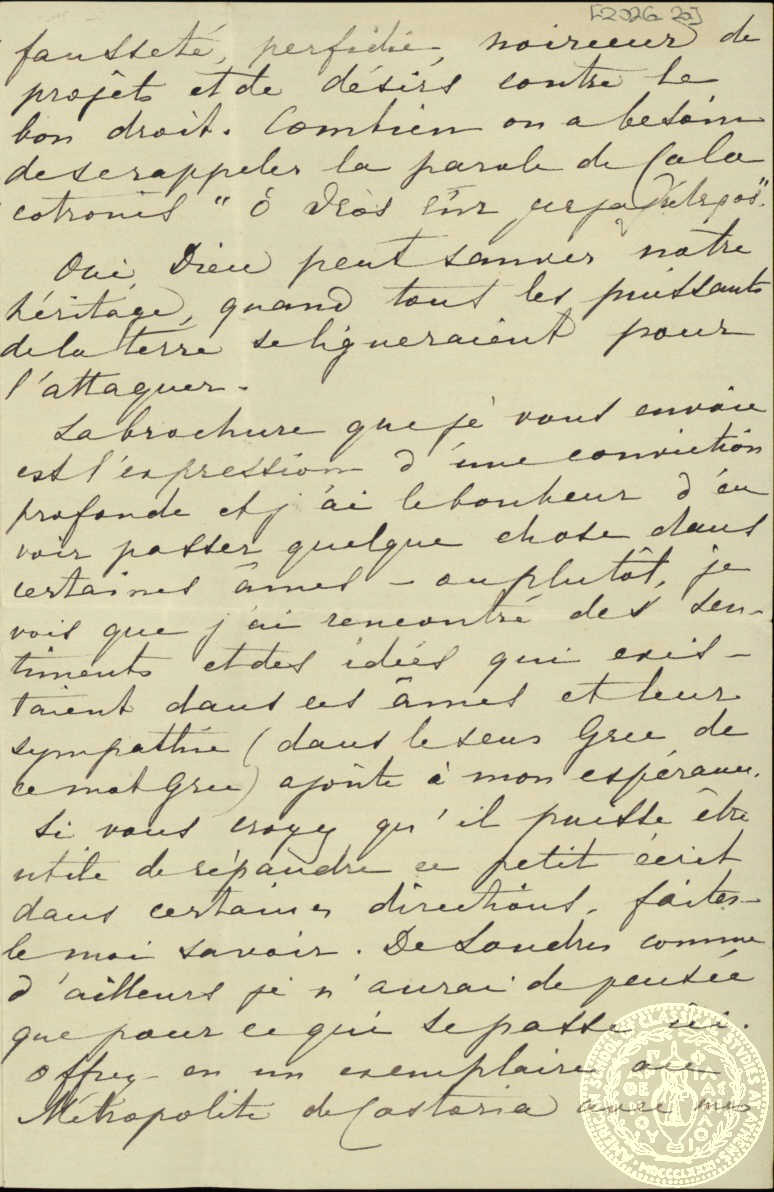 [2026 2a]
fausseté, perfidie, noirceur de
projets et de désirs contre le
bon droit. Combien on a besoin
de se rappeler la parole de Colo
cotronis " Ὁ Θεὸς εἶναι
Oui, Dieu peut sauver notre
héritage, quand tous les puissants
de la terre se ligueraient pour
l'attaquer.
La brochure que je vous envoie
est l'expression d'une conviction
profonde et j'ai le bonheur d'en
voir passer quelque chose dans
certaines âmes – ou plutôt, je
vois que j'ai rencontré des sen-
timents et des idées qui exis-
taient dans ces âmes et leur
sympathie (dans le sens Grec de
ce mot Grec) ajoute à mon espérance.
Si vous croyez qu'il puisse être
utile de répandre ce petit écrit
dans certaines directions, faites-
le moi savoir. De Londres comme
d'ailleurs je n'aurai de pensée
que pour ce qui se passe ici.
Offrez-en un exemplaire au
Métropolite de Castoria avec mes
AMERICAN SCHOOL OF CLASSICAL STUDIES AT ATHENS
MDCCCLXXXI